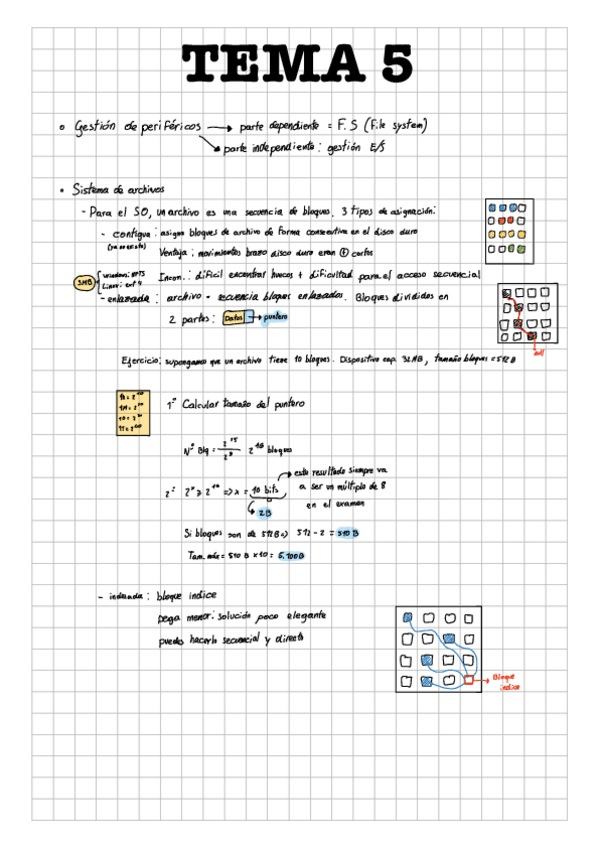 TEMA 5
• Gestión de periféricos → parte dependiente = F.S (File system)
→ parte independiente: gestión E/S
• Sistema de archivos
- Para el SO, un archivo es una secuencia de bloques. 3 tipos de asignación:
- contigua: asigna bloques de archivo de forma consecutiva en el disco duro
(ya no existe)
Ventaja: movimientos brazo disco duro eran + cortos
Incon.: difícil encontrar huecos + dificultad para el acceso secuencial
Windows: NTFS
Linux: ext 4
- enlazada: archivo = secuencia bloques enlazados. Bloques divididos en
2 partes: Datos → puntero
null
Ejercicio: supongamos que un archivo tiene 10 bloques. Dispositivo cap. 32MB, tamaño bloques = 512 B
1º Calcular tamaño del puntero
Nº Blq = 2^25 / 2^9 2^16 bloques
→ este resultado siempre va
a ser un múltiplo de 8
en el examen
2^x ≥ 2^16 => x = 16 bits
→ 2B
Si bloques son de 512B => 512 - 2 = 510 B
Tam. máx = 510 B x 10 = 5.100B
- indexada: bloque índice
pega menor: solución poco elegante
puedo hacerlo secuencial y directo
Bloque
índice